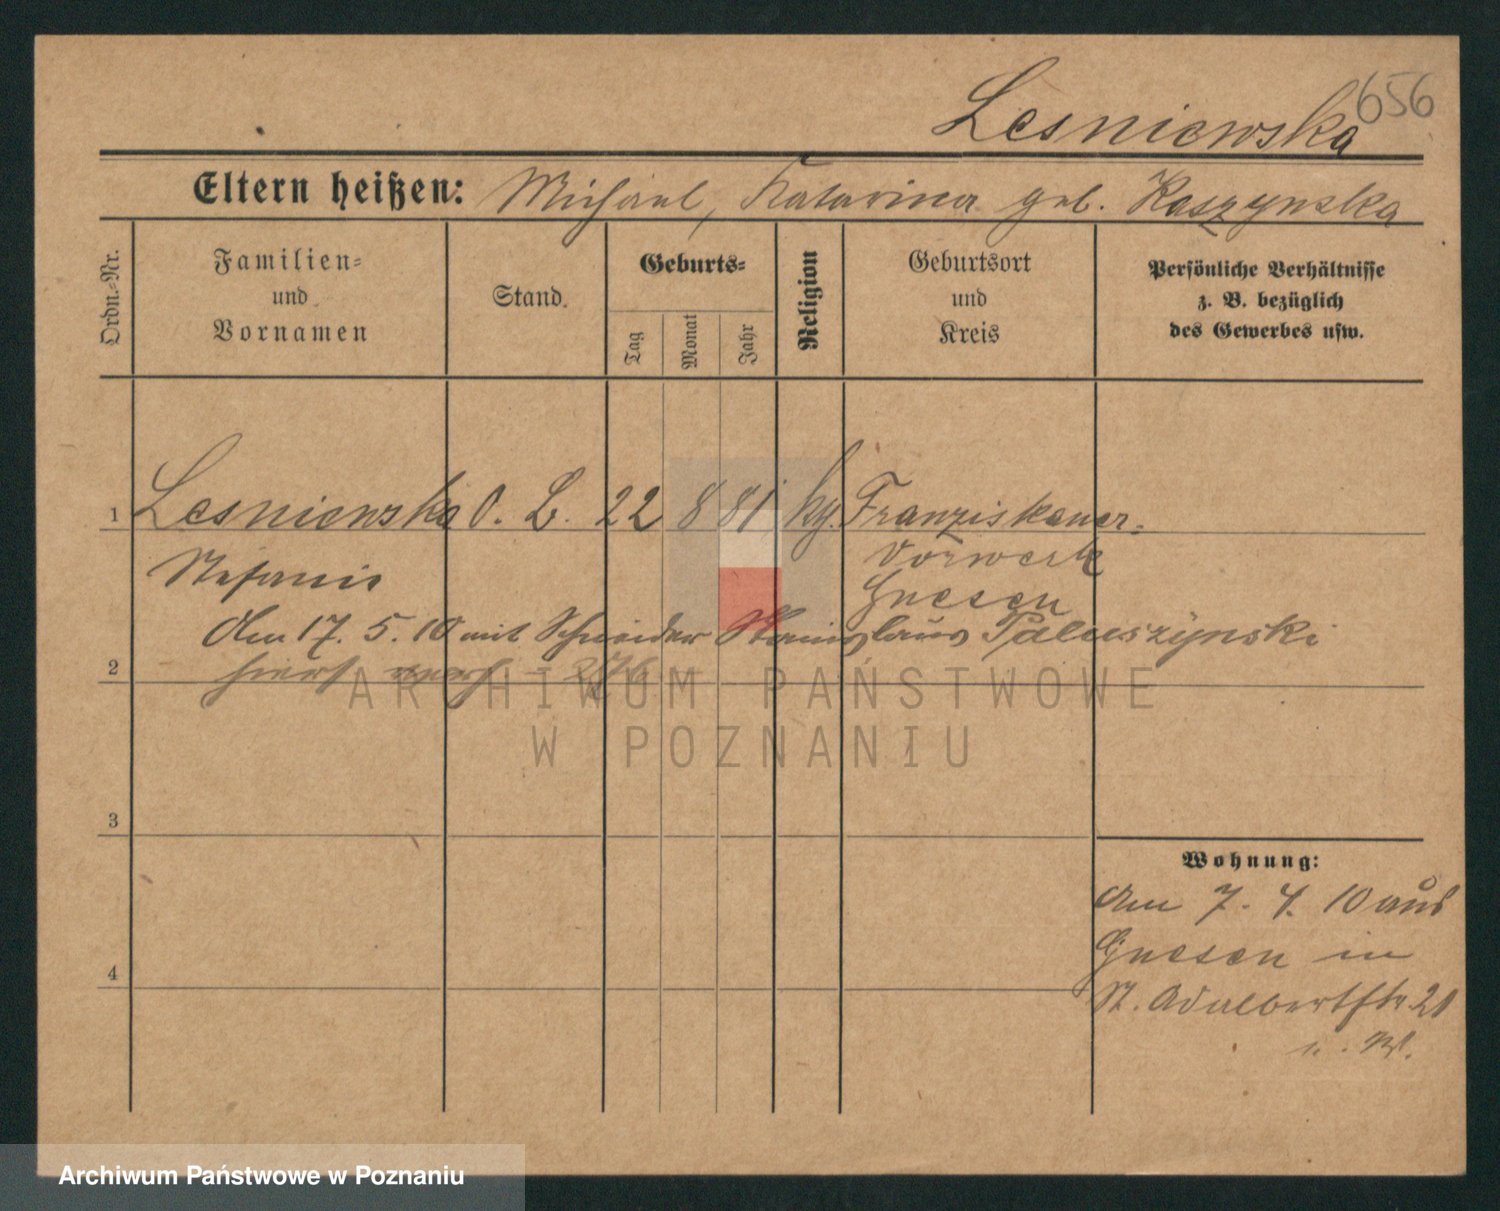 656
Lesniewska
Eltern heißen: Michael, Katarina geb. Kaszynska
Ordn.-Nr.
Familien-
und
Vornamen
Stand.
Geburts-
Tag
Monat
Jahr
Religion
Geburtsort
und
Kreis
Persönliche Verhältnisse
z. B. bezüglich
des Gewerbes usw.
1 Lesniewska O. B. 22 8 81 kg. Franziskaner-
Vorwerk
Stefanie
Gnesen
Am 17. 5. 10 mit Schneider Stanislaus Paluszynski
2
ARCHIWUM PAŃSTWOWE
W POZNANIU
3
Wohnung:
Am 7. 4. 10 aus
Gnesen in
4
St. Adalbertstr. 21
Archiwum Państwowe w Poznaniu